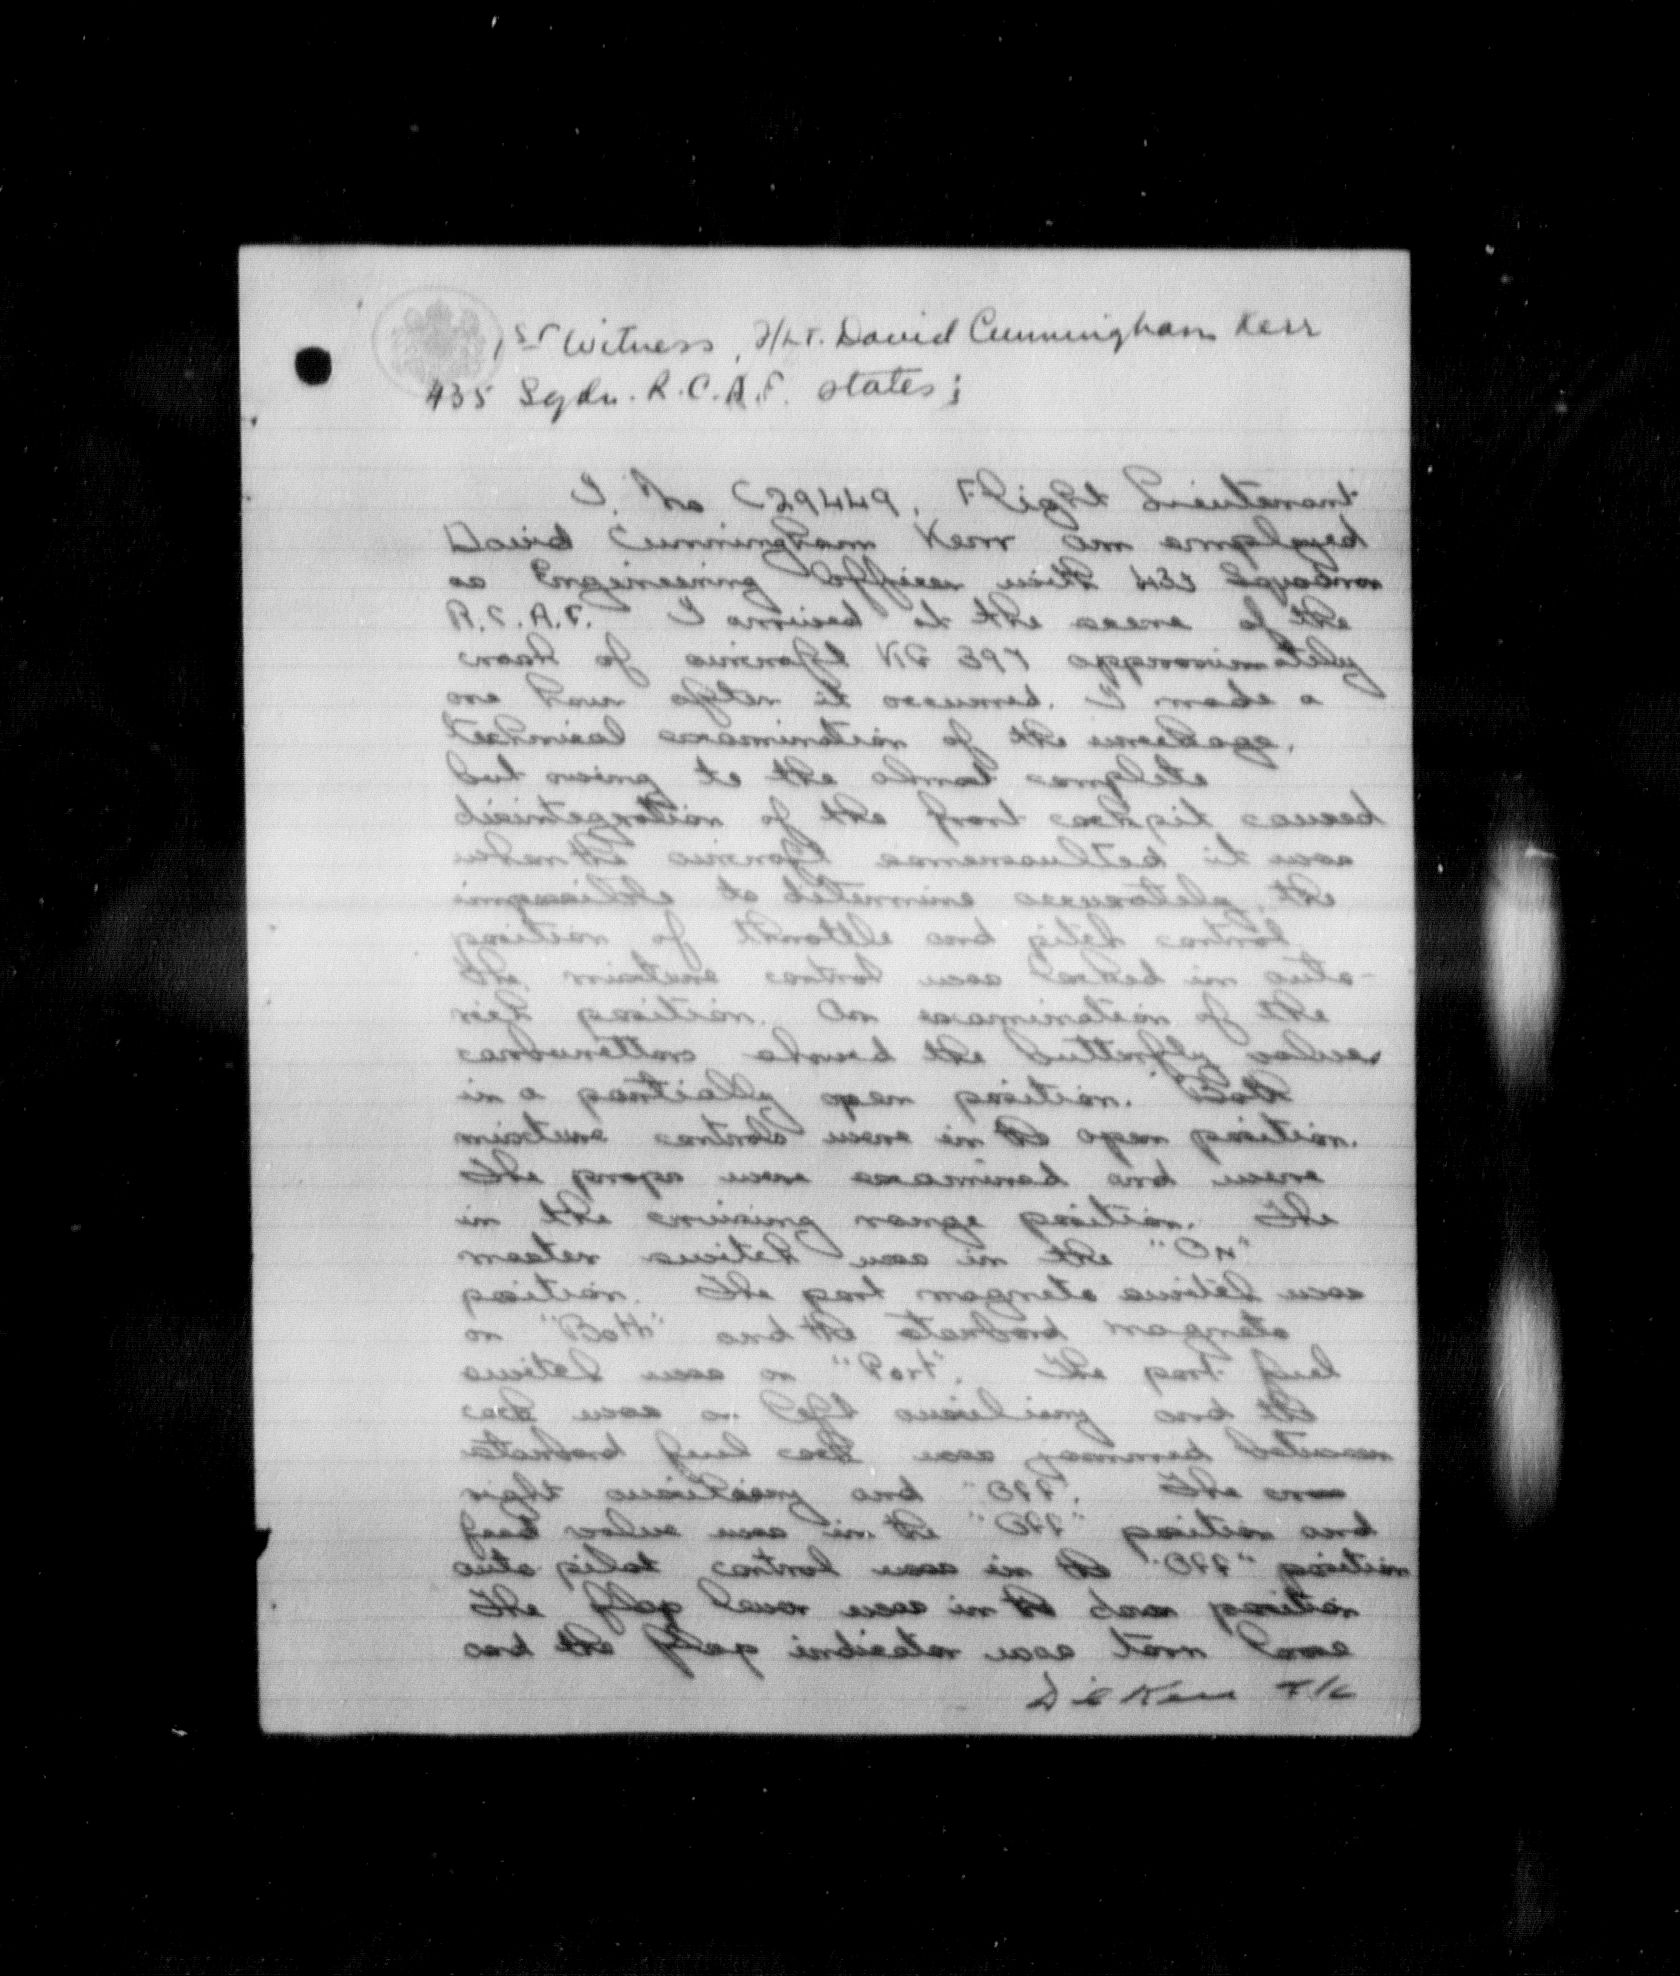 1st Witness, F/Lt. David Cunningham Kerr
435 Sqdn. R.C.A.F. states;
I. No C29449, Flight Lieutenant
David Cunningham Kerr am employed
as Engineering Officer with 435 Squadron
R.C.A.F. I arrived at the scene of the
crash of aircraft approximately
an hour after it occurred. I made a
technical examination of the wreckage.
but owing to the almost complete
disintegration of the front cockpit caused
when the aircraft somersaulted it was
impossible to determine accurately, the
position of throttle and pitch control
The mixture control was locked in auto-
rich position. An examination of the
carburettors showed the butterfly valves
in a partially open position. Both
mixture controls were in the open position.
The props were examined and were
in the cruising range position. The
master switch was in the "On"
position. The port magneto switch was
on "Both" and the starboard magneto
switch was on "Port". The port fuel
cock was on left auxiliary and the
starboard fuel cock was jammed between
right auxiliary and "Off". The cross
feed valve was in the "Off" position and
auto pilot control was in the "Off" position
The flap lever was in the position
and the flap indicator was torn loose
D C Kerr F/L